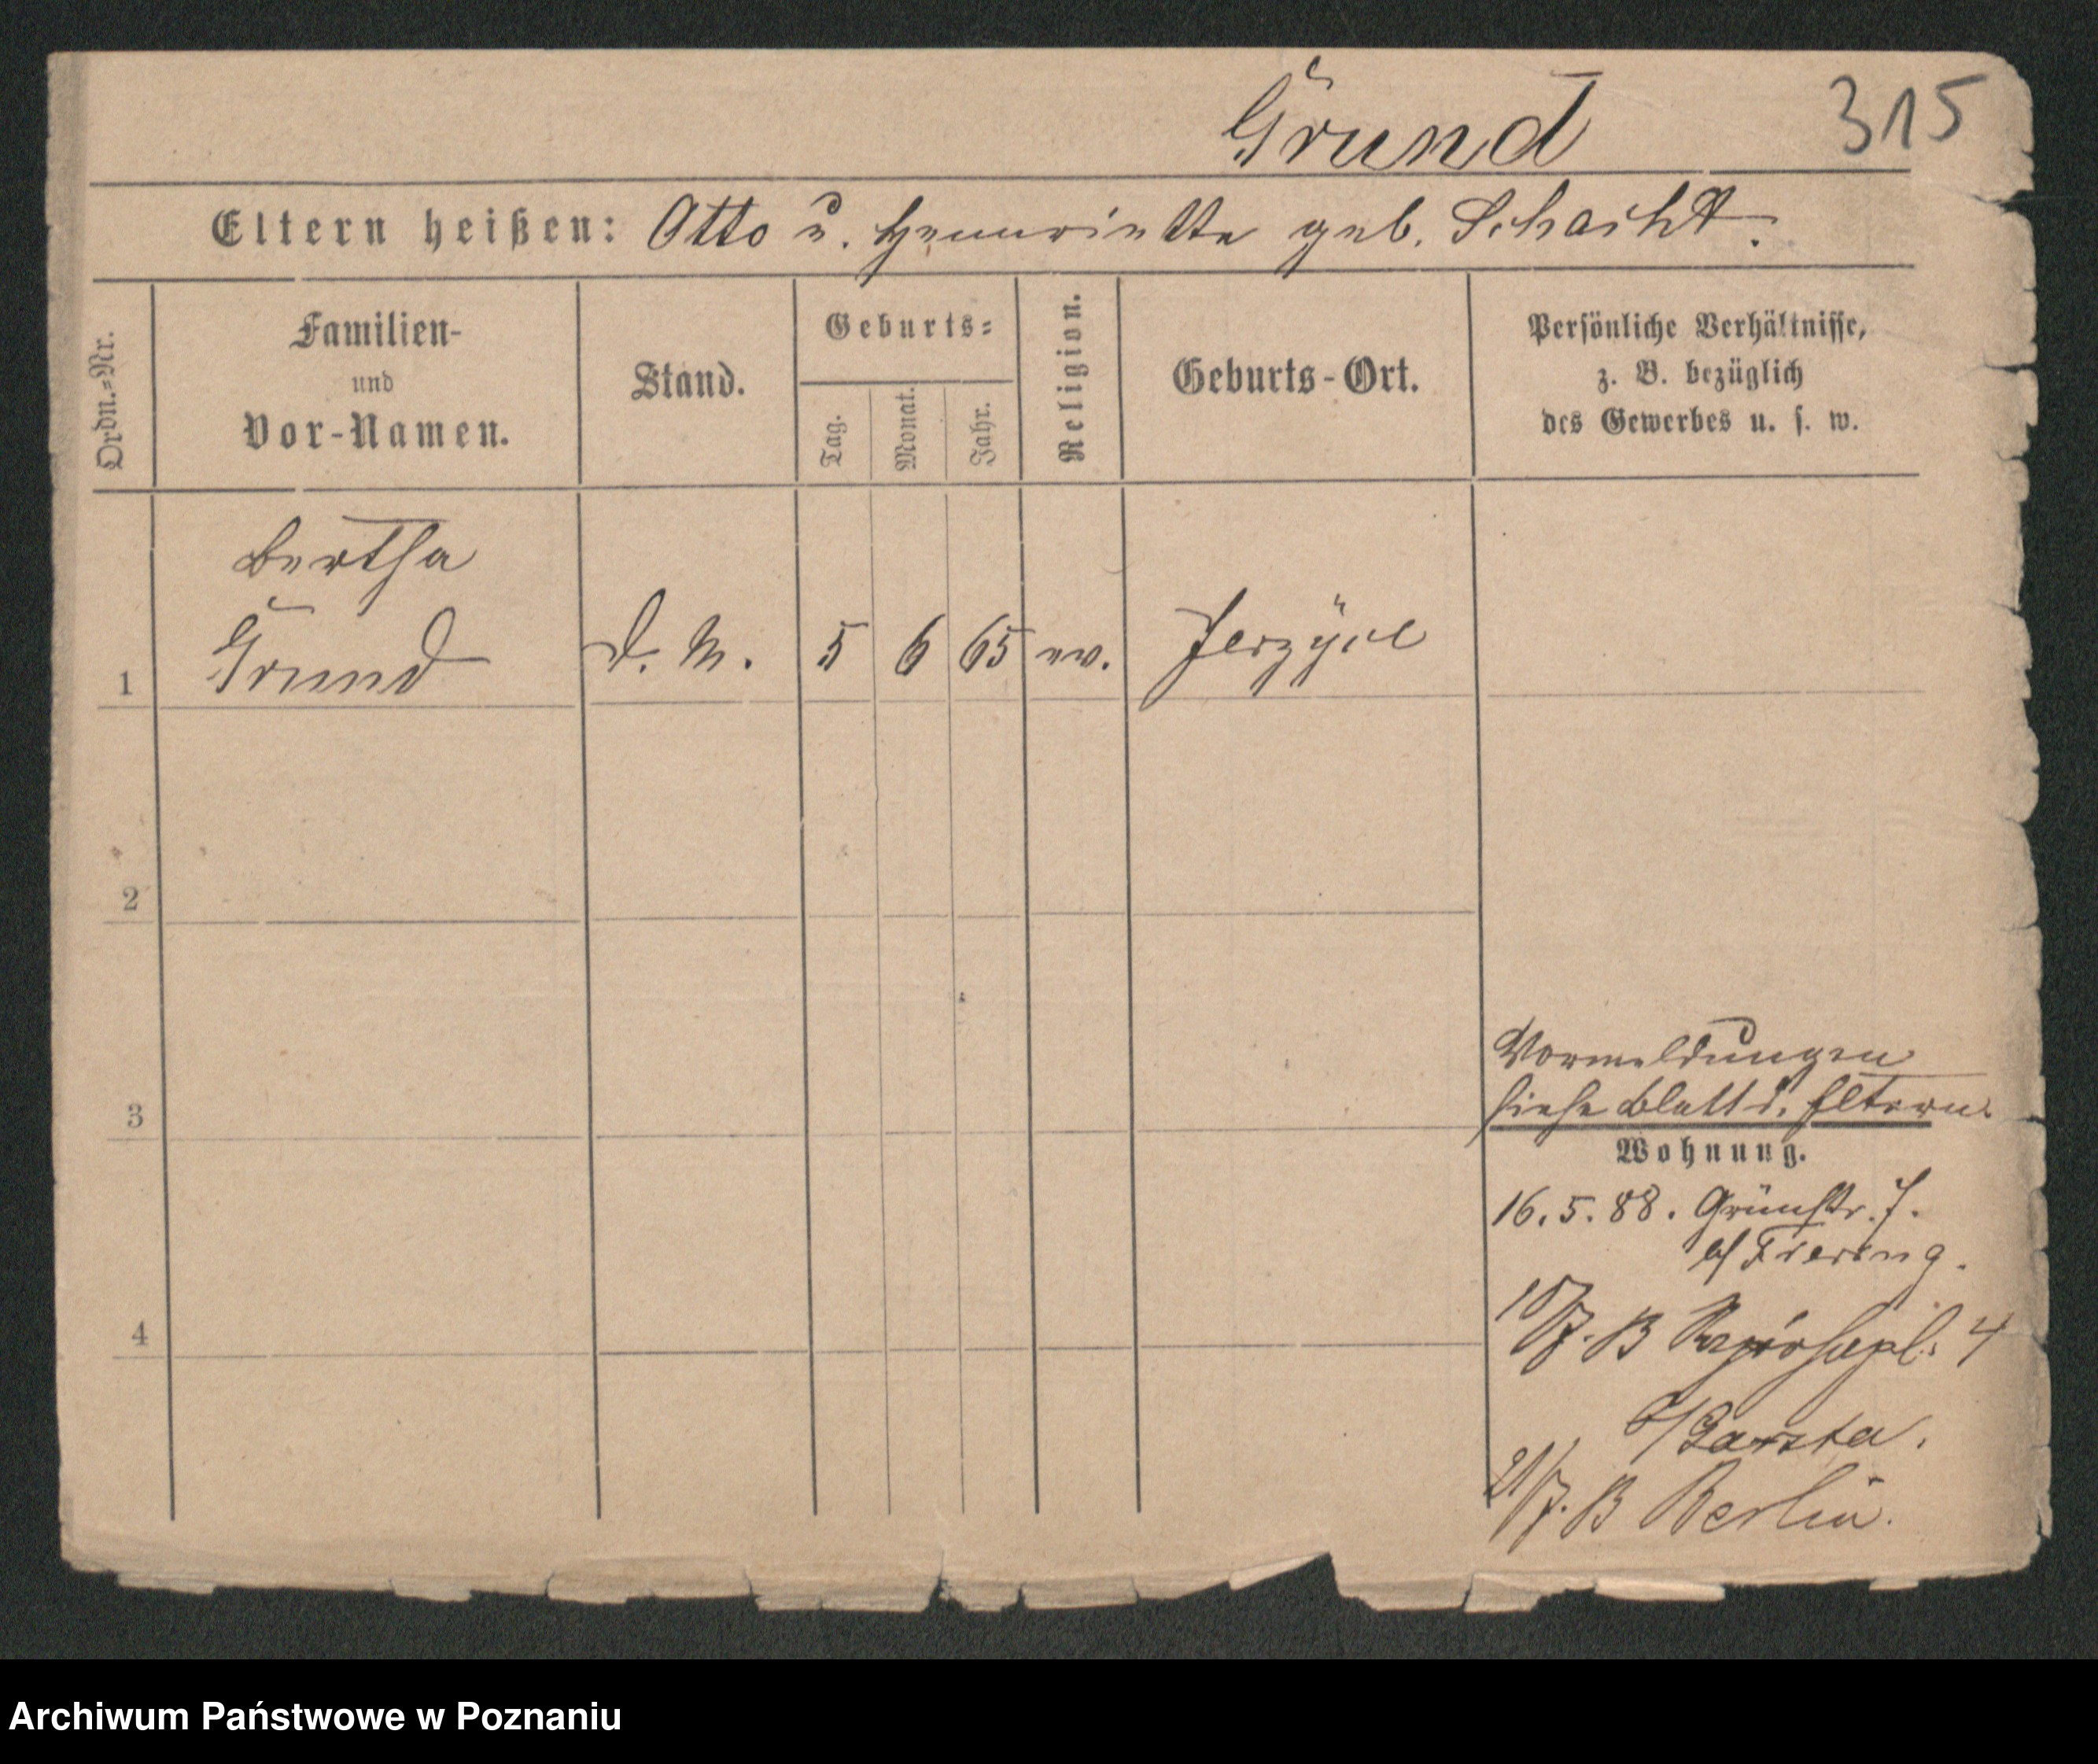 Grund
315
Eltern heißen: Otto u. Henriette geb. Schacht.
Ordn.=Nr.
Familien-
und
Vor-Namen.
Stand.
Geburts=
Tag.
Monat.
Jahr.
Religion.
Geburts-Ort.
Persönliche Verhältnisse,
z. B. bezüglich
des Gewerbes u. s. w.
Bertha
1 Grund D. M. 5 6 65 ev. Jerzyce
2
3
4
Vormeldungen
siehe Blatt d. Eltern.
Wohnung.
16. 5. 88. Grünstr. 7.
b/ Fiering.
10/7. B 4
b/
21/7. B Berlin.
Archiwum Państwowe w Poznaniu